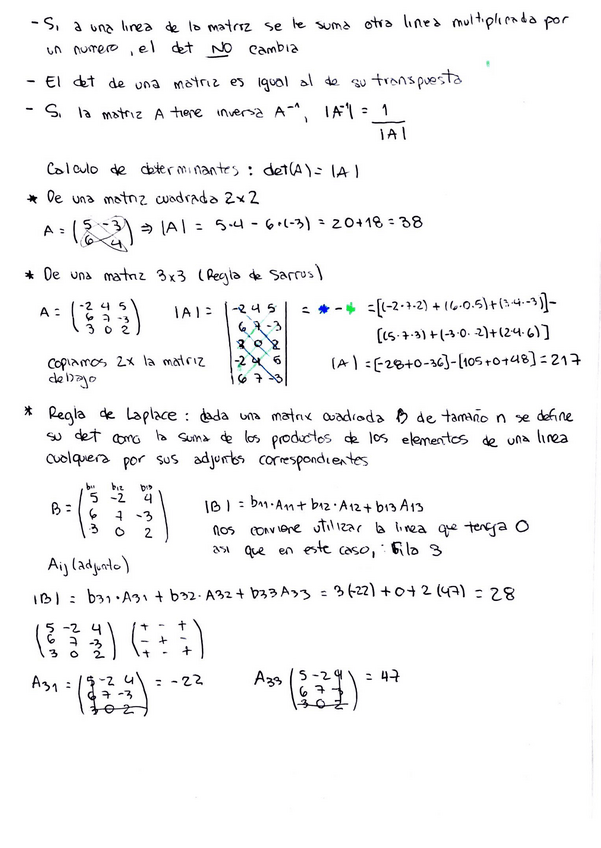 - Si a una linea de la matriz se le suma otra linea multiplicada por
un numero, el det NO cambia
- El det de una matriz es igual al de su transpuesta
- Si la matriz A tiene inversa A⁻¹, |A⁻¹| = 1/|A|
Calculo de determinantes : det(A) = |A|
* De una matriz cuadrada 2x2
A = (5 -3
6 4) ⇒ |A| = 5·4 - 6·(-3) = 20+18 = 38
* De una matriz 3x3 (Regla de Sarrus)
A = (-2 4 5
6 7 -3
3 0 2)
|A| = |-2 4 5
6 7 -3
3 0 2
-2 4 5
6 7 -3|
= * - * = [(-2·7·2) + (6·0·5) + (3·4·-3)] -
[(5·7·3) + (-3·0·-2) + (2·4·6)]
copiamos 2x la matriz
debajo
|A| = [-28+0-36] - [105+0+48] = 217
* Regla de Laplace : dada una matrix cuadrada B de tamaño n se define
su det como la suma de los productos de los elementos de una linea
cualquiera por sus adjuntos correspondientes
b11 b12 b13
B = (5 -2 4
6 7 -3
3 0 2)
|B| = b11·A11 + b12·A12 + b13 A13
nos conviene utilizar la linea que tenga 0
asi que en este caso, fila 3
Aij (adjunto)
|B| = b31·A31 + b32·A32 + b33 A33 = 3(-22) + 0 + 2(47) = 28
(5 -2 4
6 7 -3
3 0 2)
(+ - +
- + -
+ - +)
A31 = (5 -2 4
6 7 -3
3 0 2) = -22
A33 (5 -2 4
6 7 -3
3 0 2) = 47